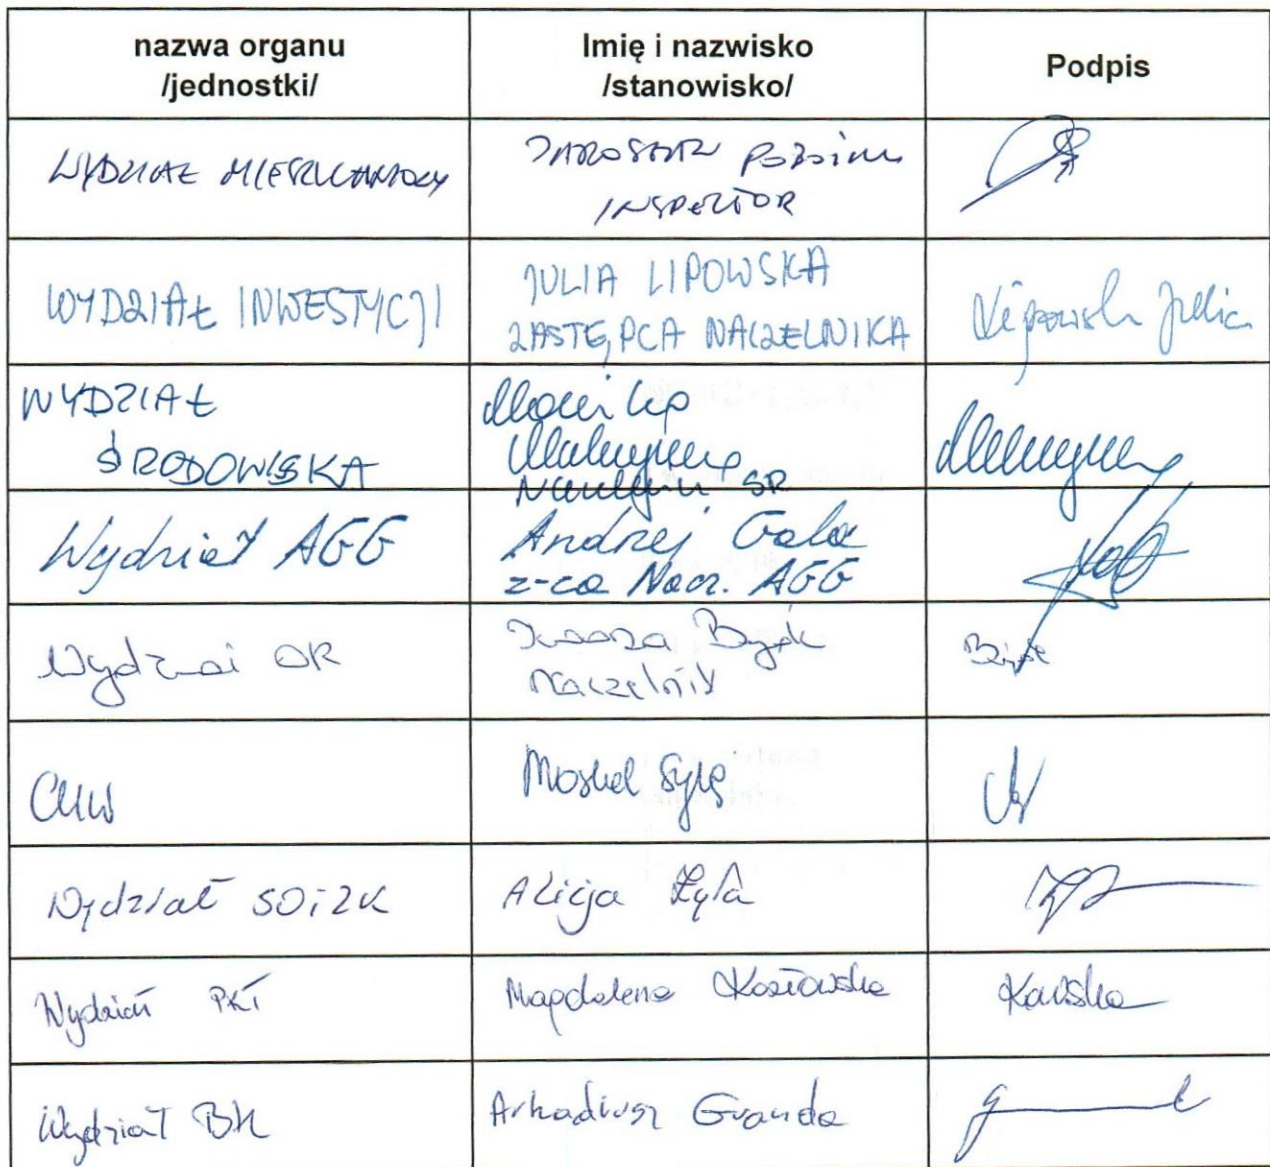 nazwa organu
/jednostki/
Imię i nazwisko
/stanowisko/
Podpis
WYDZIAŁ MIESZKANIOWY
JAROSŁAW
INSPEKTOR
WYDZIAŁ INWESTYCJI
JULIA LIPOWSKA
ZASTĘPCA NACZELNIKA
Lipowska Julia
WYDZIAŁ
ŚRODOWISKA
ŚR
Wydział AGG
Andrzej Gala
z-ca Nacz. AGG
Wydział OR
Naczelnik
CUW
Wydział SOiZK
Alicja Zyła
Wydział PKT
Magdalena Kozłowska
Wydział BK
Arkadiusz Granda